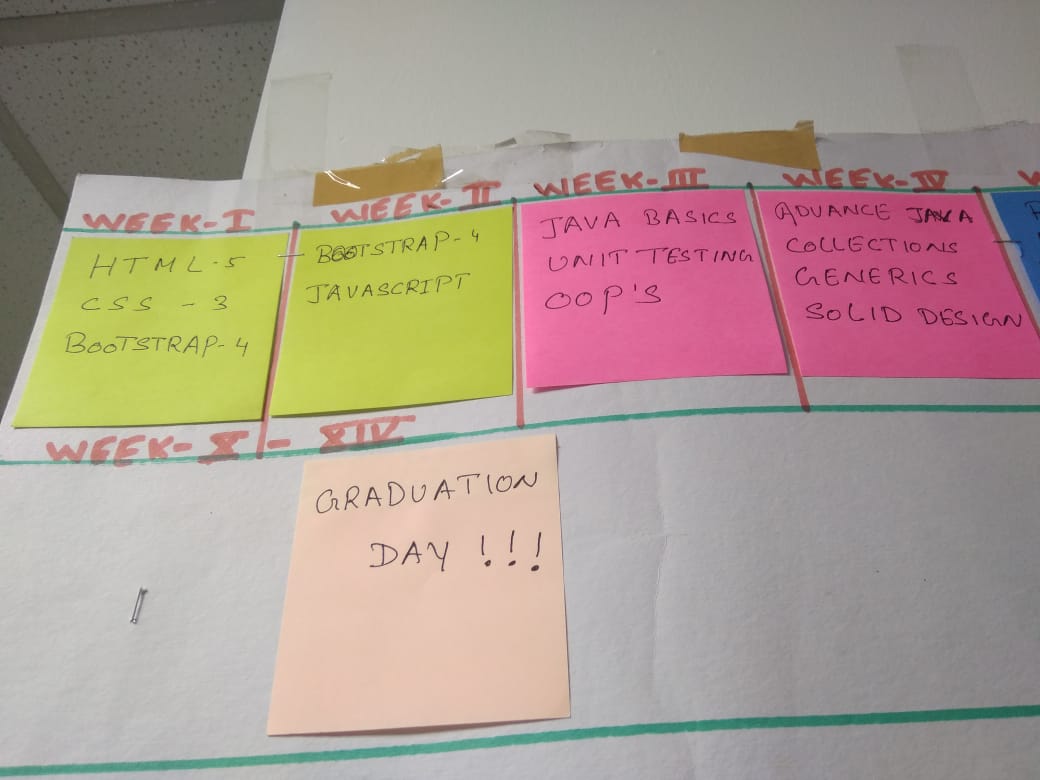 WEEK-I
HTML-5
CSS - 3
BOOTSTRAP-4
WEEK-II
BOOTSTRAP-4
JAVASCRIPT
WEEK-III
JAVA BASICS
UNIT TESTING
OOP'S
WEEK-IV
ADVANCE JAVA
COLLECTIONS
GENERICS
SOLID DESIGN
WEEK-X - XIV
GRADUATION
DAY !!!